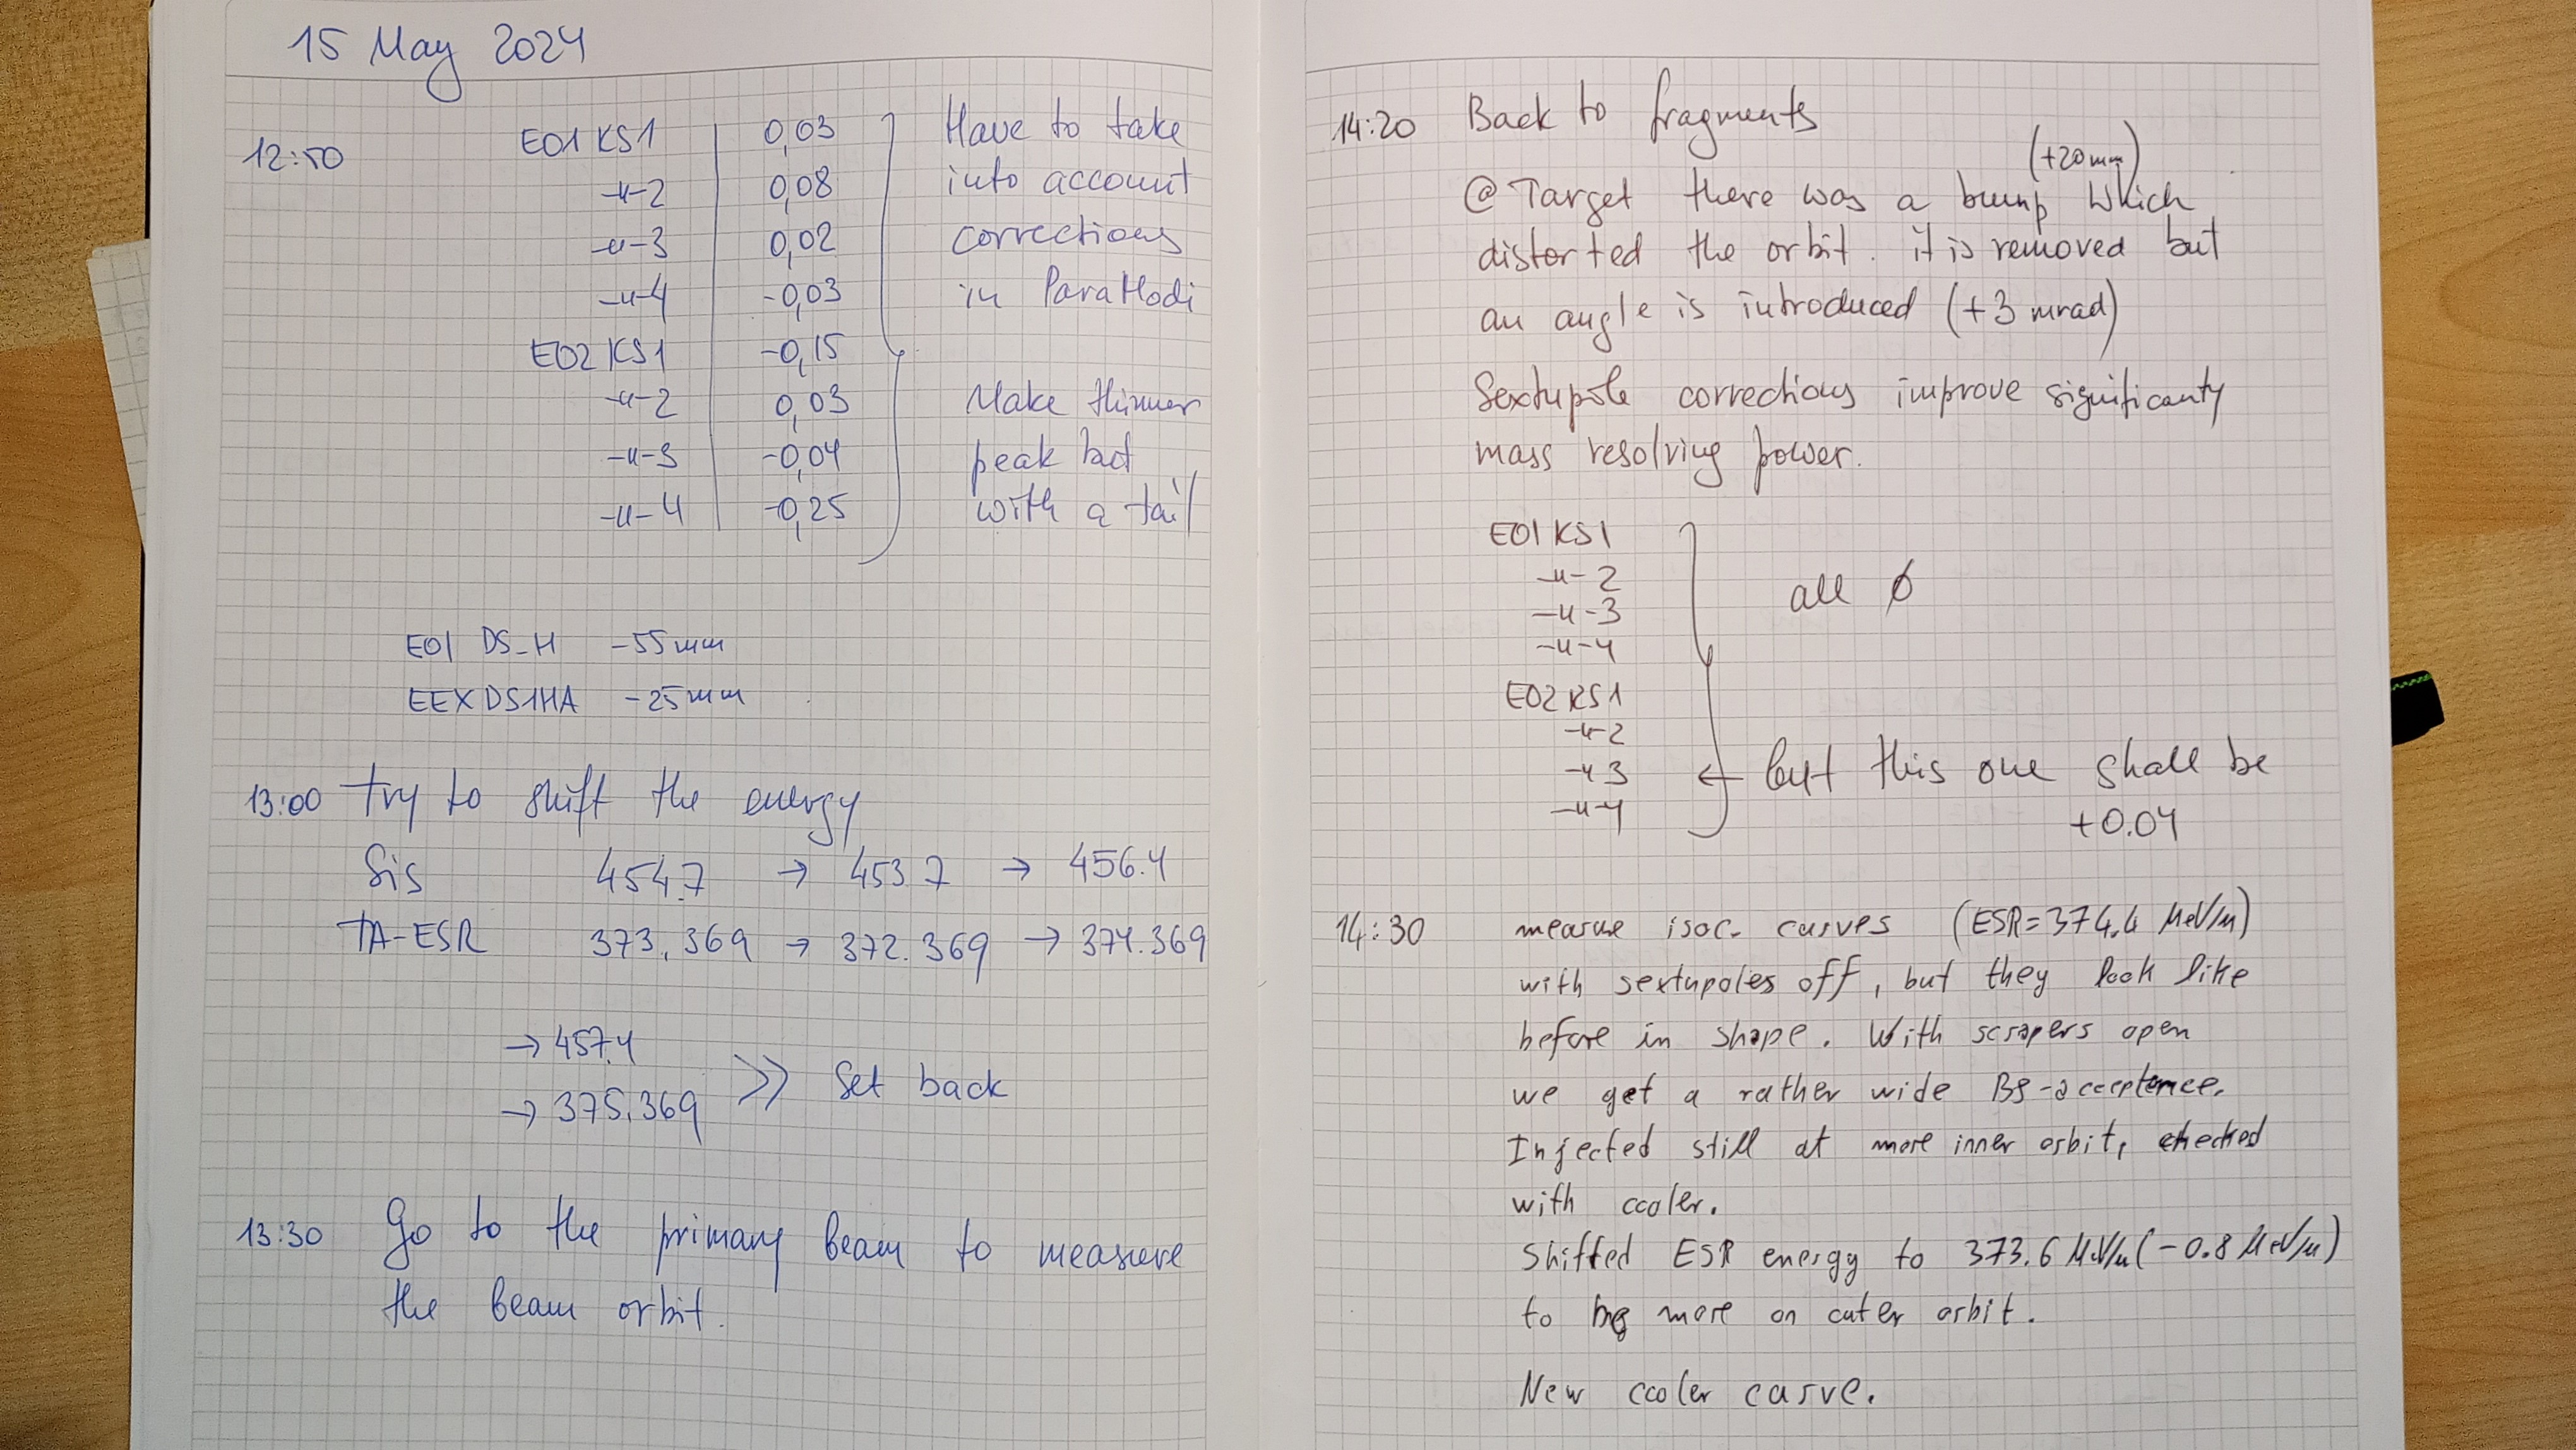 15 May 2024
12:50 E01 KS1 0,03 Have to take
-u-2 0,08 into account
-u-3 0,02 corrections
-u-4 -0,03 in ParaModi
E02 KS1 -0,15
-u-2 0,03 Make thinner
-u-3 -0,04 peak but
-u-4 -0,25 with a tail
E01 DS_H -55 mm
EEXDS1HA -25 mm
13:00 Try to shift the energy
Sis 454.7 → 453.7 → 456.4
TA-ESR 373.369 → 372.369 → 374.369
→ 457.4
→ 375.369 >> Set back
13:30 Go to the primary beam to measure
the beam orbit.
14:20 Back to fragments
(+20mm)
@Target there was a bump which
distorted the orbit. it is removed but
an angle is introduced (+3 mrad)
Sextupole corrections improve significanty
mass resolving power.
E01 KS1
-u-2 all ∅
-u-3
-u-4
E02 KS1
-u-2
-u3 ← but this one shall be
-u-4 +0.04
14:30 measure isoc. curves (ESR=374.4 MeV/u)
with sextupoles off, but they look like
before in shape. With scrapers open
we get a rather wide Bρ-acceptence.
Injected still at more inner orbit, checked
with cooler.
Shifted ESR energy to 373.6 MeV/u (-0.8 MeV/u)
to be more on outer orbit.
New cooler curve.